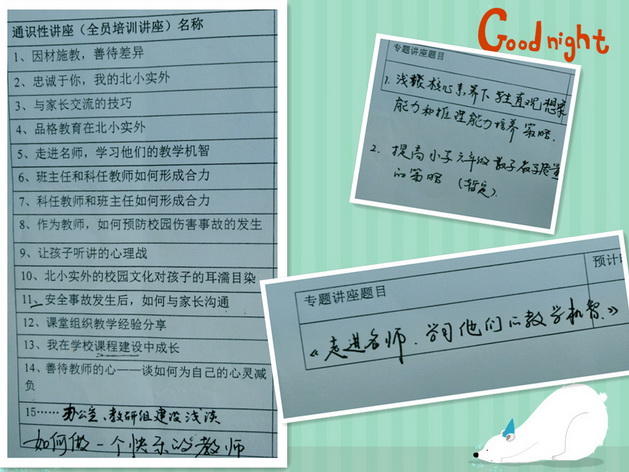 通识性讲座（全员培训讲座）名称
1、因材施教，善待差异
2、忠诚于你，我的北小实外
3、与家长交流的技巧
4、品格教育在北小实外
5、走进名师，学习他们的教学机智
6、班主任和科任教师如何形成合力
7、科任教师和班主任如何形成合力
8、作为教师，如何预防校园伤害事故的发生
9、让孩子听讲的心理战
10、北小实外的校园文化对孩子的耳濡目染
11、安全事故发生后，如何与家长沟通
12、课堂组织教学经验分享
13、我在学校课程建设中成长
14、善待教师的心——谈如何为自己的心灵减
负
15……办公室、教研组建设浅谈
如何做一个快乐的教师
Good night
专题讲座题目
1. 浅谈核心素养下学生直观想象
能力和推理能力培养策略.
2. 提高小学六年级数学教学质量
的策略（暂定）.
专题讲座题目
预计时
《走进名师.学习他们的教学机智.》